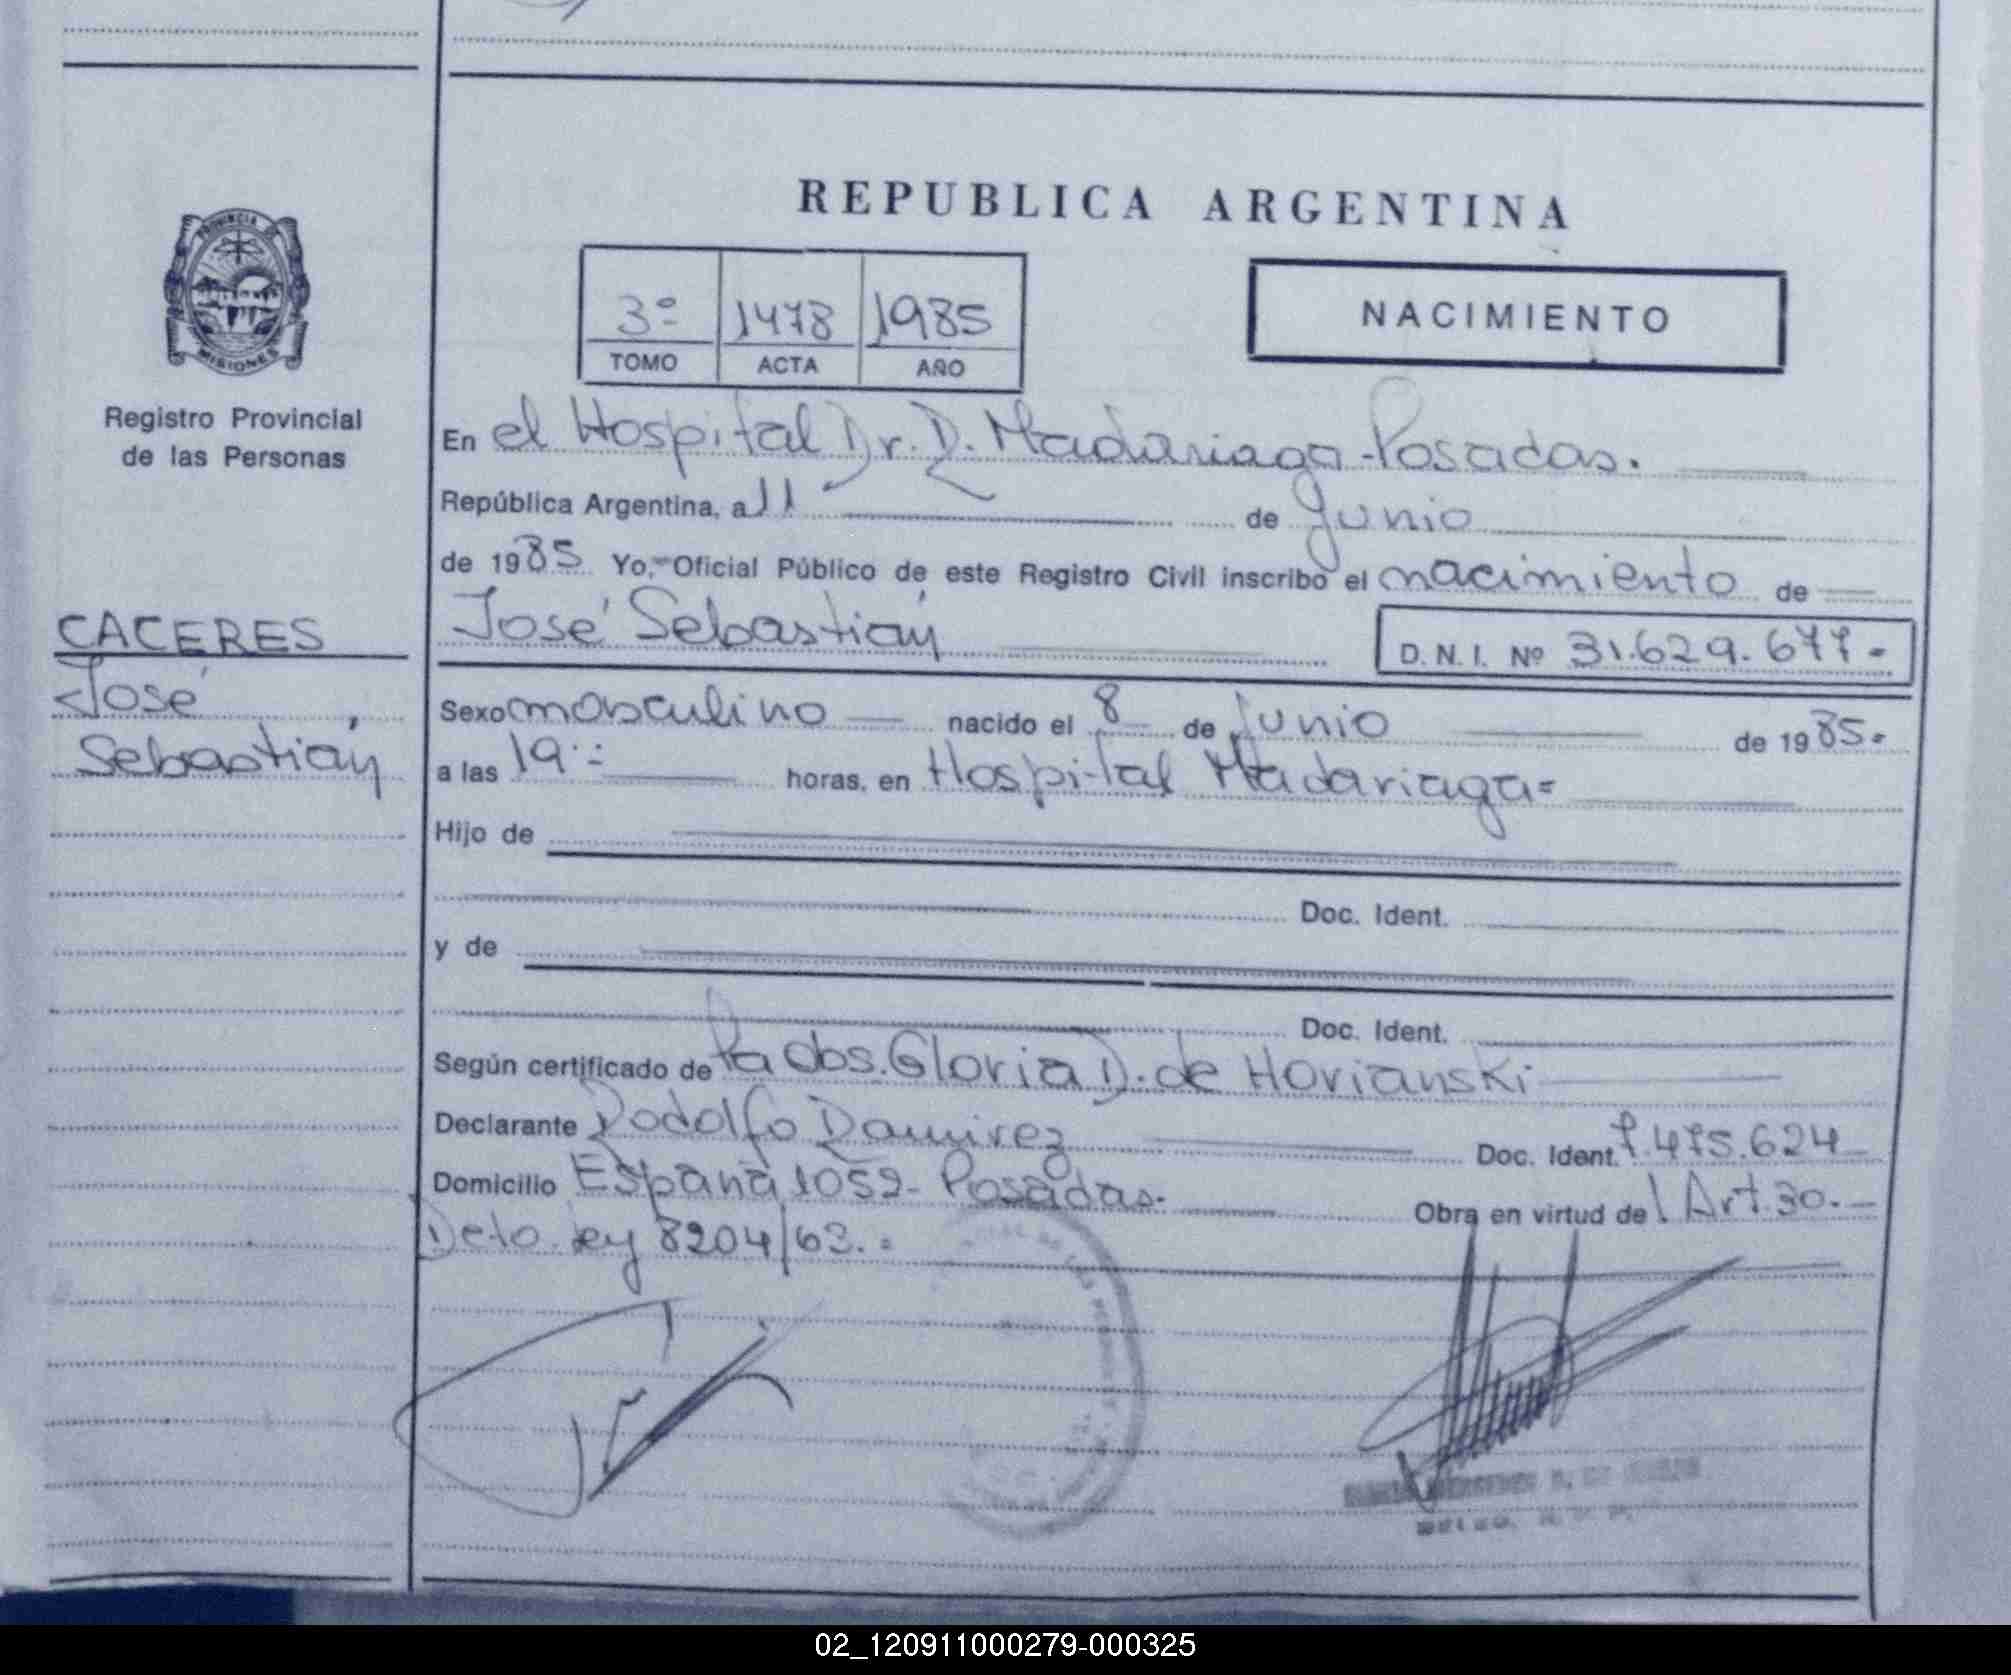 REPUBLICA ARGENTINA
PROVINCIA DE
MISIONES
Registro Provincial
de las Personas
3º 1478 1985
TOMO ACTA AÑO
NACIMIENTO
En el Hospital Dr. R. Madariaga - Posadas.
República Argentina, a 11 de Junio
de 1985 Yo, Oficial Público de este Registro Civil inscribo el nacimiento de
José Sebastián
D. N. I. Nº 31.629.677.-
CACERES
José
Sebastián
Sexo masculino nacido el 8 de Junio de 1985.
a las 19:: horas, en Hospital Madariaga=
Hijo de
Doc. Ident.
y de
Doc. Ident.
Según certificado de la obs. Gloria D. de Horianski
Declarante Rodolfo Ramirez Doc. Ident. 7.475.624
Domicilio España 1052 - Posadas. Obra en virtud del Art. 30.-
Dcto. ley 8204/63.=
02_120911000279-000325